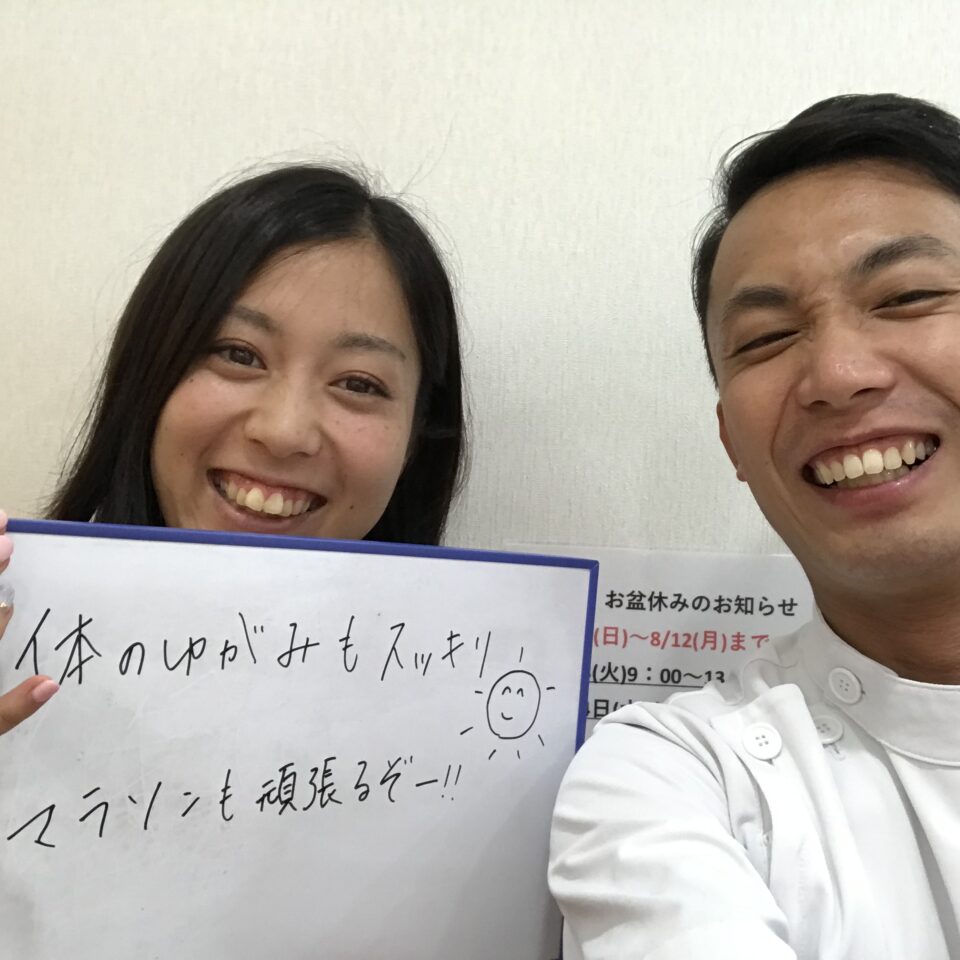 体のゆがみもスッキリ
マラソンも頑張るぞー!!
お盆休みのお知らせ
(日)～8/12(月)まで
(火)9：00～13
日(